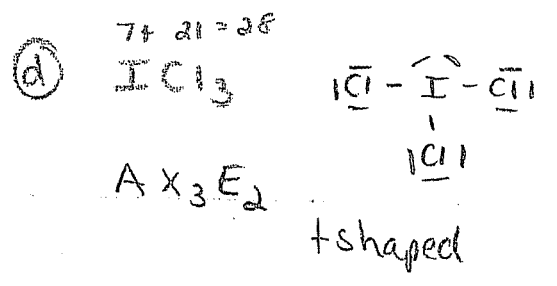 7+ 21 = 28
(d) ICl3
|Cl - I - Cl|
|
|Cl|
AX3E2
t shaped